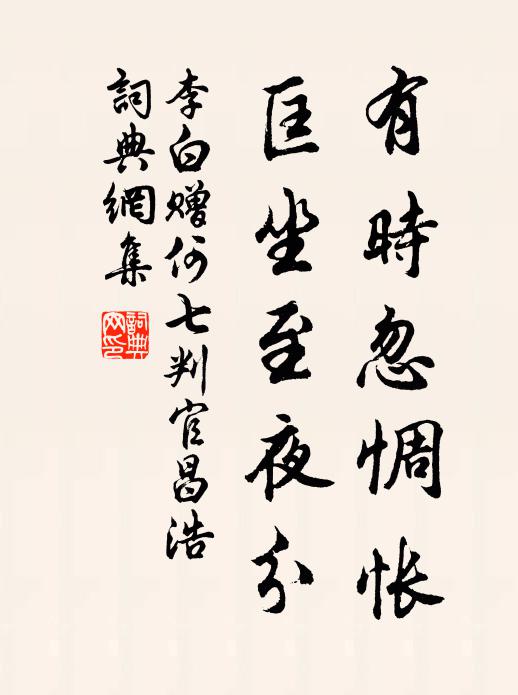 有時忽惆怅
匡坐至夜分
李白赠何七判官昌浩
詞典網集
詞典网印